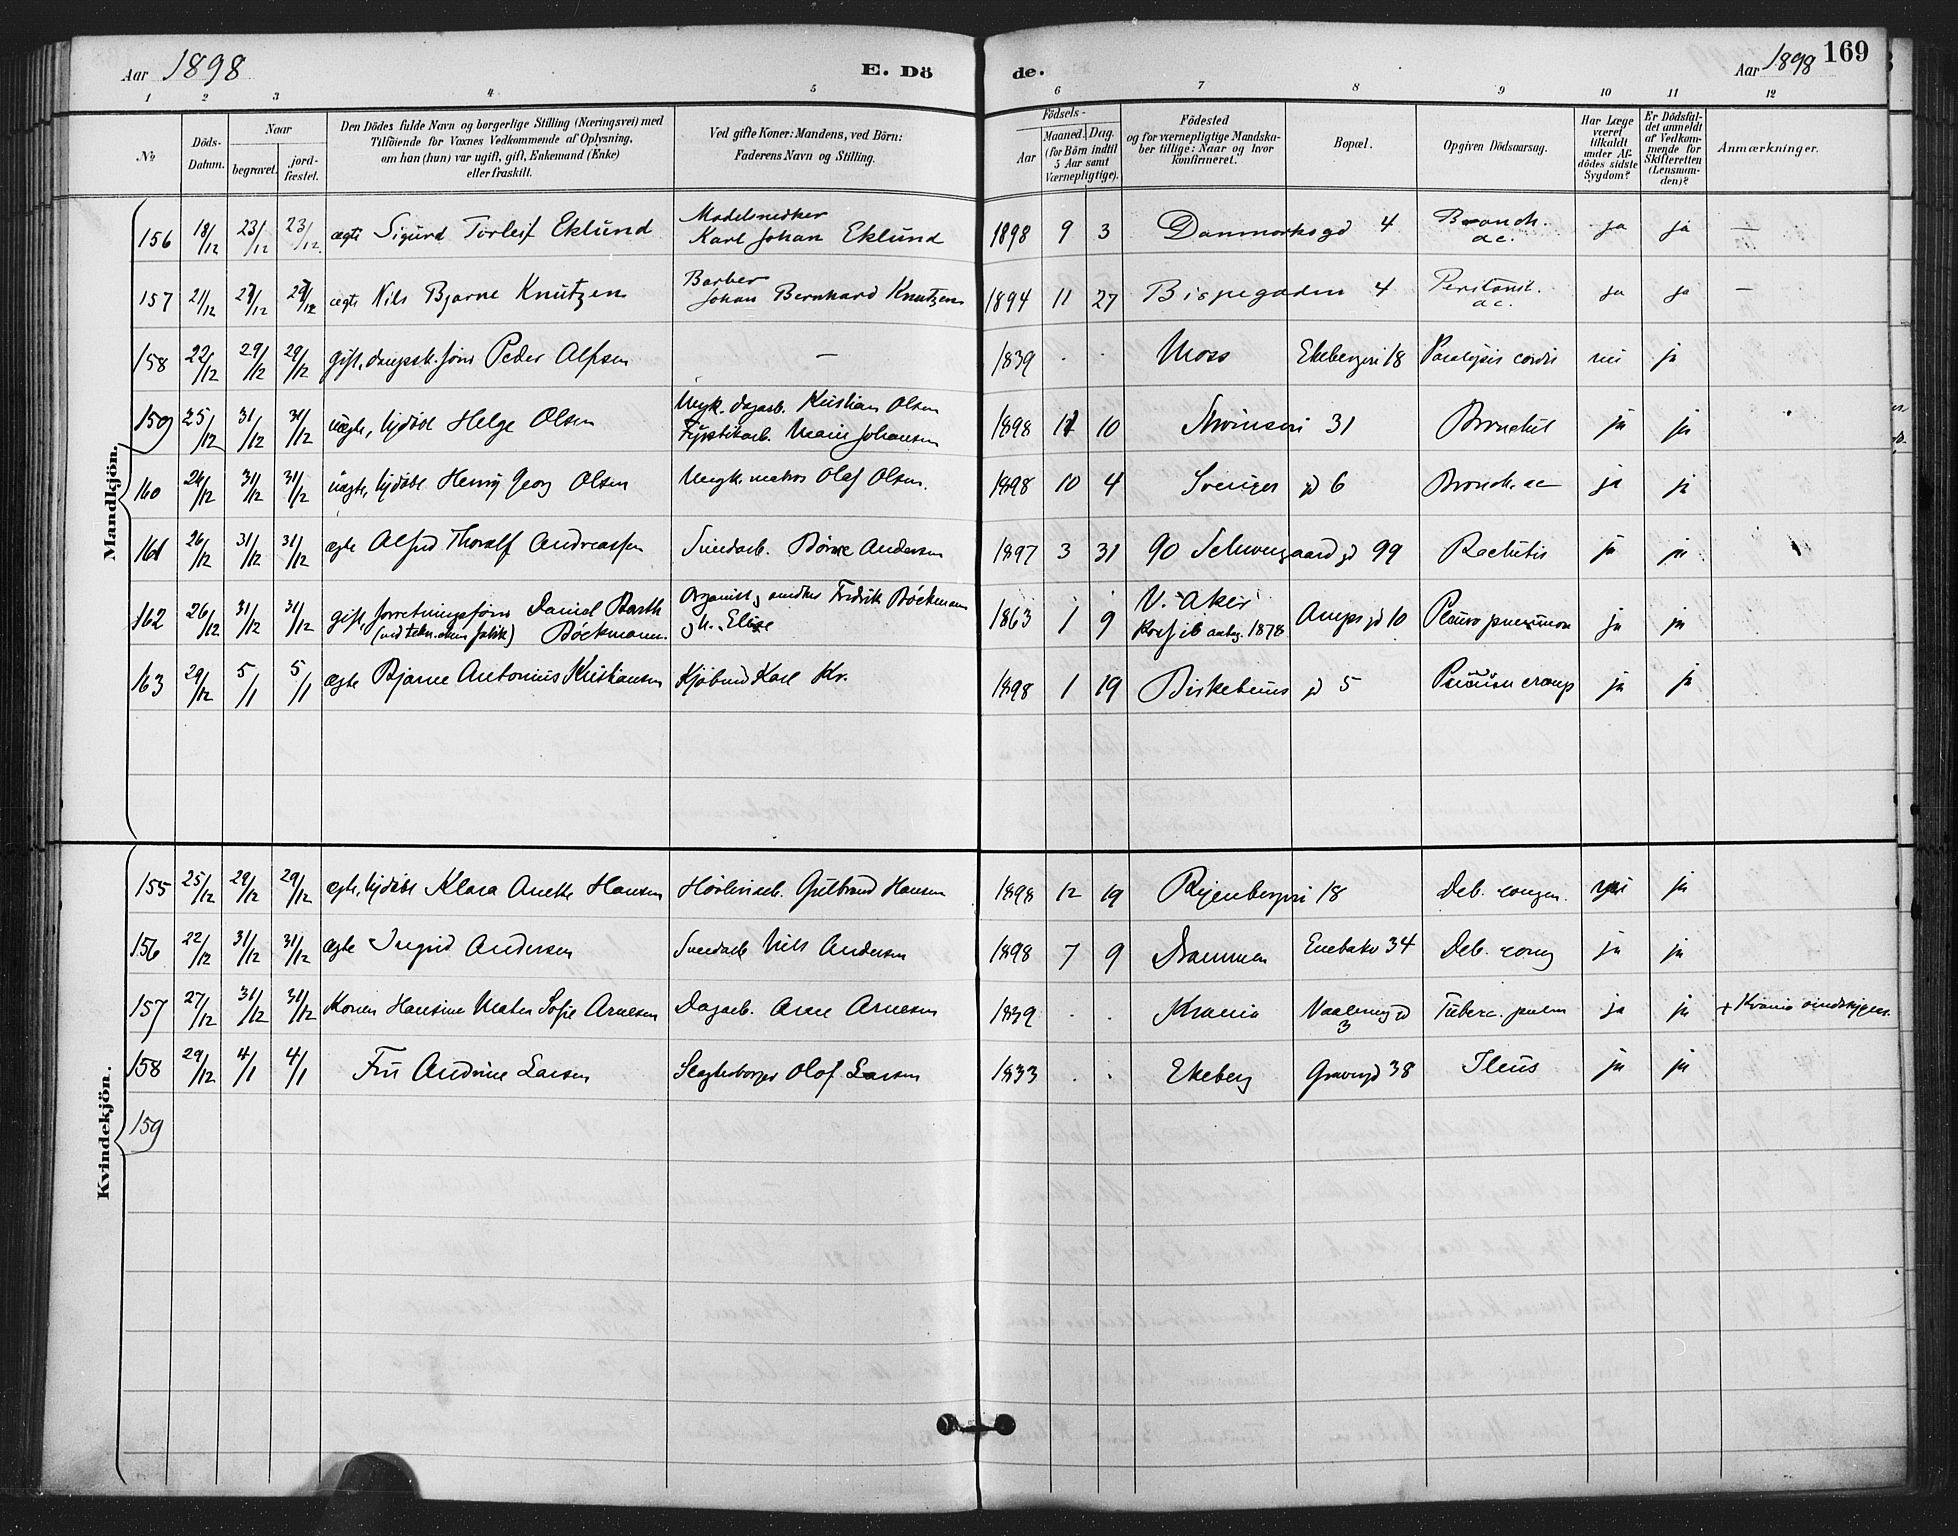 Aar 1898
E. Dö
de.
Aar 1898
169
1 2 3 4 5 6 7 8 9 10 11 12
No
Döds-
Datum.
Naar
begravet.
jord-
fæstet.
Den Dödes fulde Navn og borgerlige Stilling (Næringsvei) med
Tilföiende for Voxnes Vedkommende af Oplysning,
om han (hun) var ugift, gift, Enkemand (Enke)
eller fraskilt.
Ved gifte Koner: Mandens, ved Börn:
Faderens Navn og Stilling.
Födsels-
Aar
Maaned. Dag.
(for Börn indtil
5 Aar samt
Værnepligtige).
Födested
og for værnepligtige Mandska-
ber tillige: Naar og hvor
konfirmeret.
Bopæl.
Opgiven Dödsaarsag.
Har Læge
været
tilkaldt
under Af-
dödes sidste
Sygdom?
Er Dödsfal-
det anmeldt
af Vedkom-
mende for
Skifteretten
(Lensman-
den)?
Anmærkninger.
Mandkjön.
156 18/12 23/12 23/12 ægte Sigurd Torleif Eklund Modelsnedker
Karl Johan Eklund 1898 9 3 Danmarksgd 4 Bronch.
ac. ja ja —
157 21/12 27/12 27/12 ægte Nils Bjarne Knutzen Barber
Johan Bernhard Knutzen 1894 11 27 Bispegaden 4 Peritonit.
ac. ja ja —
158 22/12 29/12 29/12 gift, dampsk.förer Peder Alfsen — 1839 . . Moss Ekebergvei 18 Paralysis cordis nei ja
159 25/12 31/12 31/12 uægte, hjdöbt Helge Olsen Ungk. dagarb. Kristian Olsen
Fyrstikarb. Marie Johansen 1898 11 10 31 Bronchit ja ja
160 24/12 31/12 31/12 uægte, hjdöbt Henry Georg Olsen Ungk. matros Olaf Olsen. 1898 10 4 Sveriges gd 6 Bronch. ac ja ja
161 26/12 31/12 31/12 ægte Alfred Thoralf Andreassen Börre Andersen 1897 3 31 90 Schweigaard gd 99 Rachitis ja ja
162 26/12 31/12 31/12 gift, forretningsförer Daniel Barth
Böckmann. Organist, Fredrik Böckmann
og h. Elise 1863 1 9 V. Aker
1878 Amps gd 10 Pleuro pneumon ja ja
163 29/12 5/1 5/1 ægte Bjarne Antonius Kristiansen Kjöbmd Karl Kr. 1898 1 19 Birkebeiner gd 5 Pneumon croup ja ja
Kvindekjön.
155 25/12 29/12 29/12 ægte, hjdöbt Klara Anette Hansen Gulbrand Hansen 1898 12 19 Ryenbergvei 18 Deb. congen. nei ja
156 22/12 31/12 31/12 ægte Ingrid Andersen Nils Andersen 1898 7 9 Drammen Enebakv 34 Deb. cong ja ja
157 27/12 31/12 31/12 Konen Hansine Maten Sofie Arnesen Dagarb. Arne Arnesen 1839 . . Krania Vaalereng gd
3 Tuberc. pulm ja ja + Krania sindssygeas.
158 29/12 4/1 4/1 Fru Andrine Larsen Slagterborger Olof Larsen 1833 . . Ekeberg 38 Ileus ja ja
159